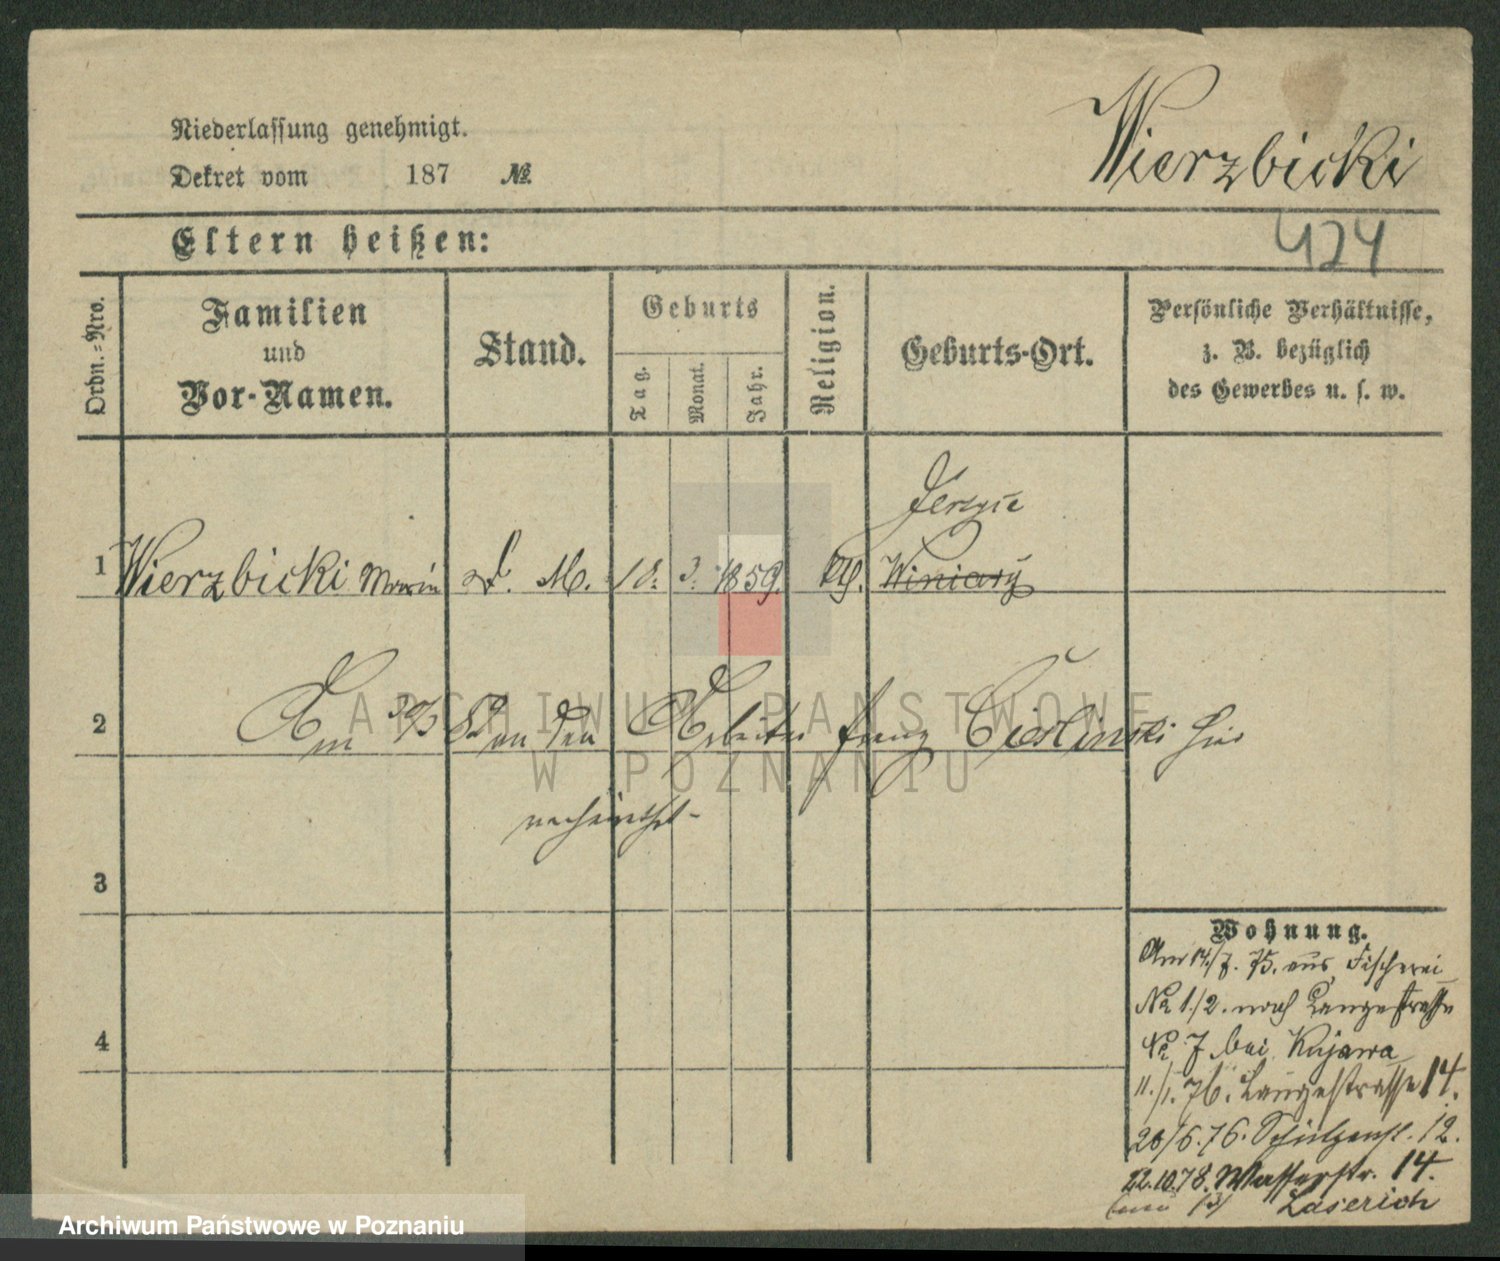 Wierzbicki
Niederlassung genehmigt.
Dekret vom 187 №
424
Eltern heißen:
Ordn.-Nro.
Familien
und
Vor-Namen.
Stand.
Geburts
Tag.
Monat.
Jahr.
Religion.
Geburts-Ort.
Persönliche Verhältnisse,
z. B. bezüglich
des Gewerbes u. s. w.
Jersyce
1 Wierzbicki Maria d. M. 10. 3. 1859. kth. Winiary
2 Am 30/5 82 an den Arbeiter Franz Cieslinski hier
verheirathet
3
4
Wohnung.
Am 14./7. 75. aus Fischerei
№ 1./2. nach Langestrasse
№ 7 bei Kujawa
11./1. 76. Langestrasse 14.
20/6. 76. Schützenst. 12.
22.10.78. Wasserstr. 14.
Laserich
ARCHIWUM PAŃSTWOWE
W POZNANIU
Archiwum Państwowe w Poznaniu